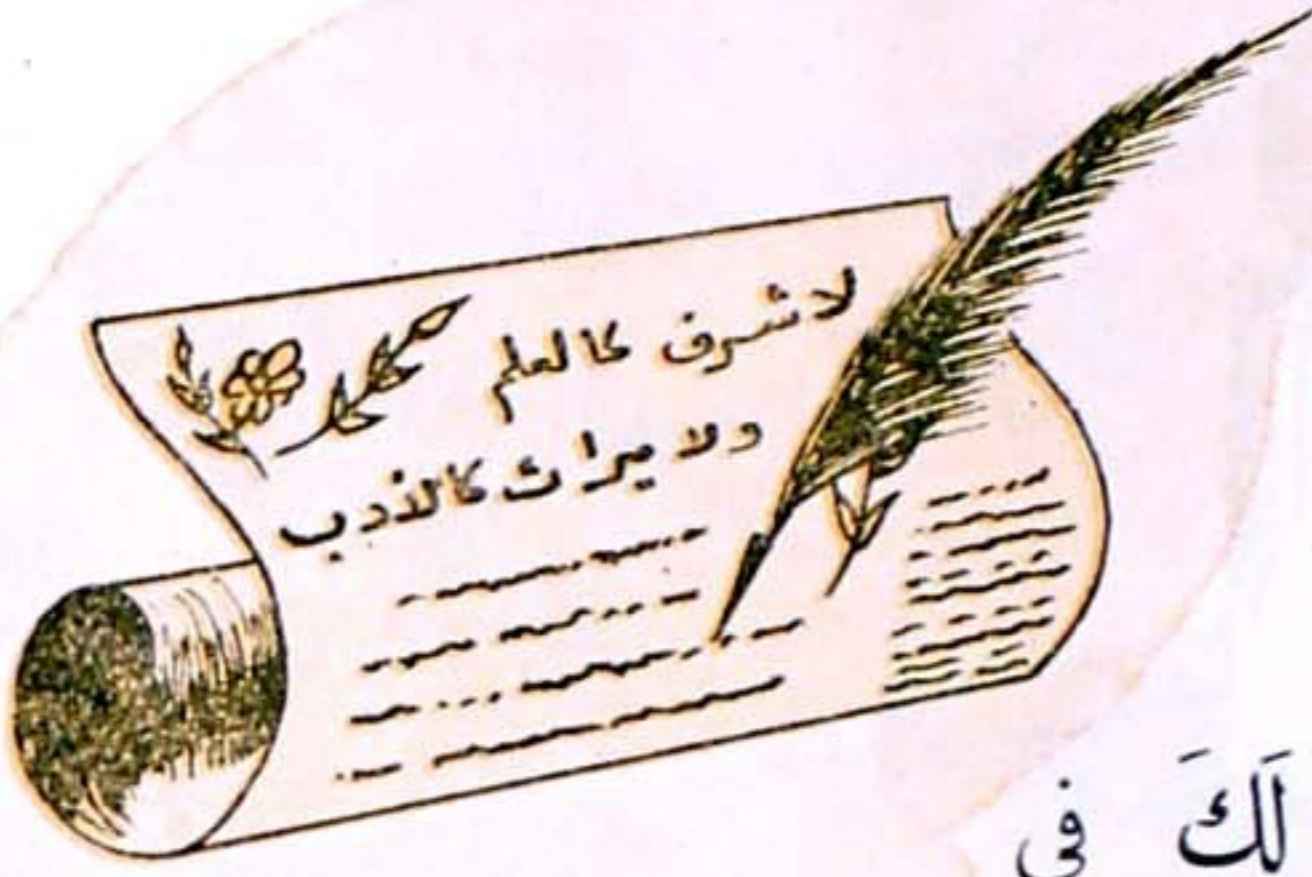 لا شرف كالعلم
ولا ميراث كالأدب
لَكَ في